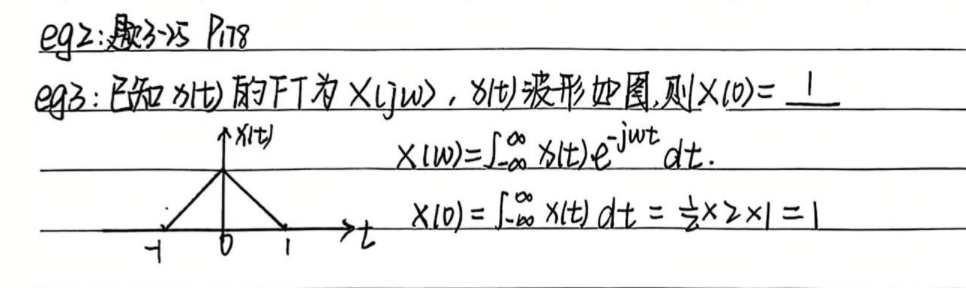 eg2:题3-25 P178
eg3:已知x(t)的FT为X(jw),x(t)波形如图,则X(0)= 1
x(t)
X(w)=∫_{-∞}^{∞} x(t)e^{-jwt} dt.
X(0)=∫_{-∞}^{∞} x(t) dt = ½×2×1=1
-1 0 1 t